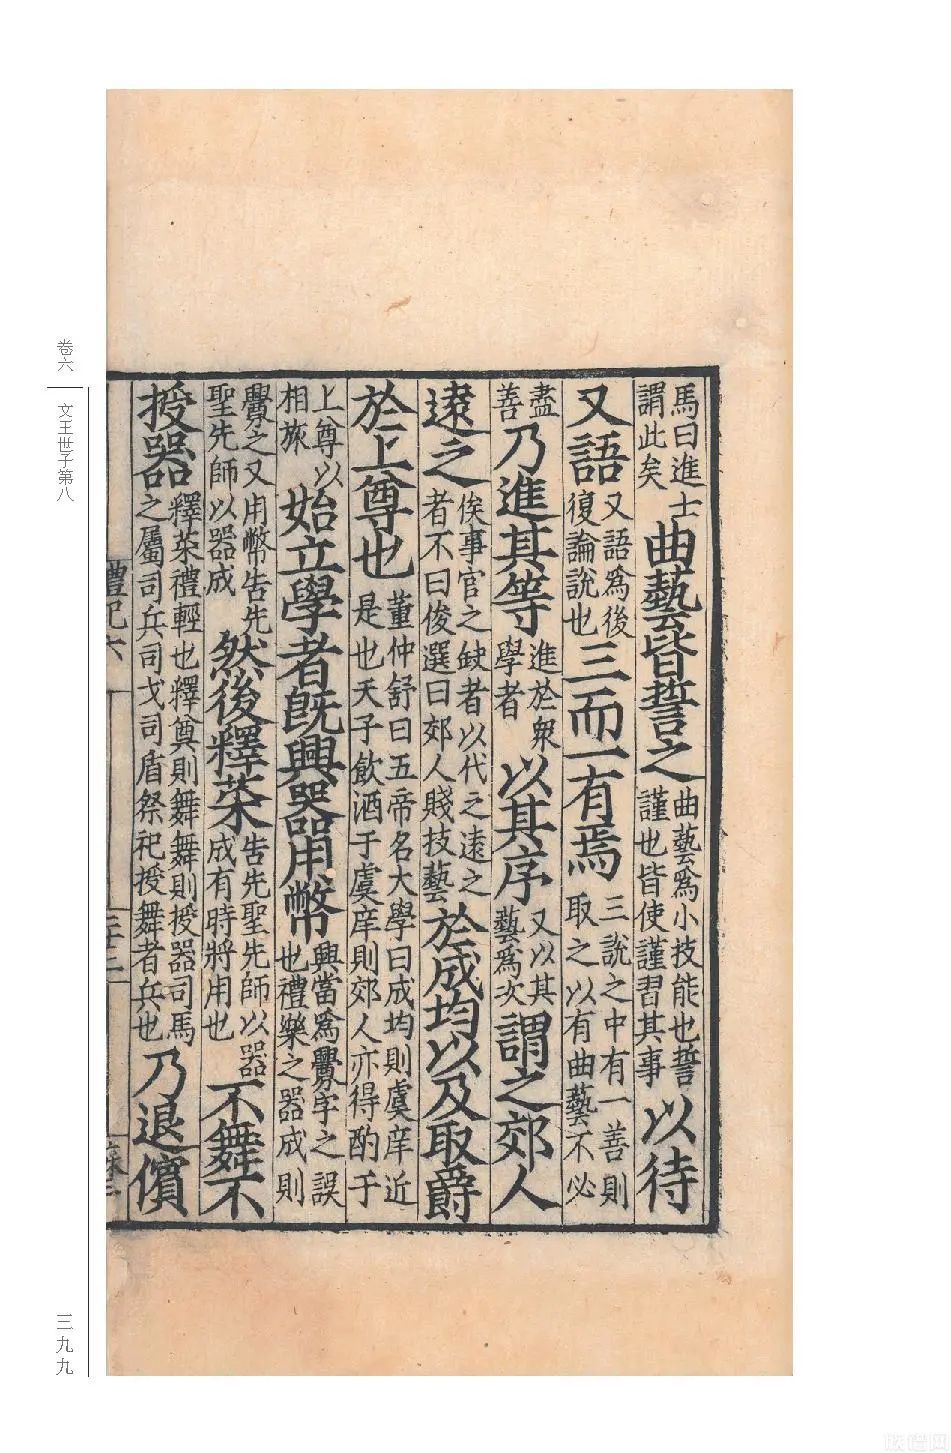 馬曰進士謂此矣曲藝皆誓之曲藝爲小技能也誓謹也皆使謹習其事以待
又語又語爲後復論說也三而一有焉三說之中有一善則取之以有曲藝不必
盡善乃進其等進於衆學者以其序又以其藝爲次謂之郊人
遠之俟事官之缺者以代之遠之者不曰俊選曰郊人賤技藝於成均以及取爵
於上尊也董仲舒曰五帝名大學曰成均則虞庠近是也天子飲酒于虞庠則郊人亦得酌于
上尊以相旅始立學者既興器用幣興當爲釁字之誤也禮樂之器成則
釁之又用幣告先聖先師以器成然後釋菜告先聖先師以器成有時將用也不舞不
授器釋菜禮輕也釋奠則舞舞則授器司馬之屬司兵司戈司盾祭祀授舞者兵也乃退儐
禮記六
卷六
文王世子第八
三九九